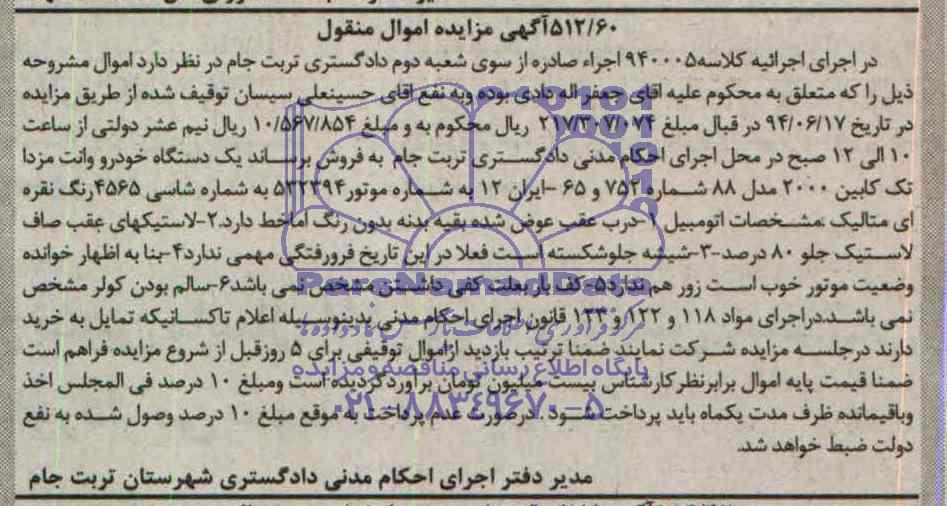 ۵۱۲/۶۰آگهی مزایده اموال منقول
در اجرای اجرائیه کلاسه۹۴۰۰۰۵ اجراء صادره از سوی شعبه دوم دادگستری تربت جام در نظر دارد اموال مشروحه
ذیل را که متعلق به محکوم علیه اقای جعفر اله دادی بوده وبه نفع اقای حسینعلی سیسان توقیف شده از طریق مزایده
در تاریخ ۹۴/۰۶/۱۷ در قبال مبلغ ۲۱۷/۳۰۷/۰۷۴ ریال محکوم به و مبلغ ۱۰/۵۶۷/۸۵۴ ریال نیم عشر دولتی از ساعت
۱۰ الی ۱۲ صبح در محل اجرای احکام مدنی دادگستری تربت جام به فروش برساند یک دستگاه خودرو وانت مزدا
تک کابین ۲۰۰۰ مدل ۸۸ شماره ۷۵۲ و ۶۵ -ایران ۱۲ به شماره موتور۵۳۲۳۹۴ به شماره شاسی ۴۵۶۵،رنگ نقره
ای متالیک مشخصات اتومبیل ۱-درب عقب عوض شده بقیه بدنه بدون رنگ اماخط دارد.۲-لاستیکهای عقب صاف
لاستیک جلو ۸۰ درصد-۳-شیشه جلوشکسته است فعلا در این تاریخ فرورفتگی مهمی ندارد۴-بنا به اظهار خوانده
وضعیت موتور خوب است زور هم ندارد۵-کف بار بعلت کفی داشتن مشخص نمی باشد۶-سالم بودن کولر مشخص
نمی باشد.دراجرای مواد ۱۱۸ و ۱۲۲ و ۱۲۳ قانون اجرای احکام مدنی بدینوسیله اعلام تاکسانیکه تمایل به خرید
دارند درجلسه مزایده شرکت نمایند ضمنا ترتیب بازدید ازاموال توقیفی برای ۵ روزقبل از شروع مزایده فراهم است
ضمنا قیمت پایه اموال برابرنظرکارشناس بیست میلیون تومان برآوردگردیده است ومبلغ ۱۰ درصد فی المجلس اخذ
وباقیمانده ظرف مدت یکماه باید پرداخت شود .درصورت عدم پرداخت به موقع مبلغ ۱۰ درصد وصول شده به نفع
دولت ضبط خواهد شد.
مدیر دفتر اجرای احکام مدنی دادگستری شهرستان تربت جام
ParsNamadData
پایگاه اطلاع رسانی مناقصه و مزایده
۰۲۱-۸۸۳٤۹٦۷۰-۵